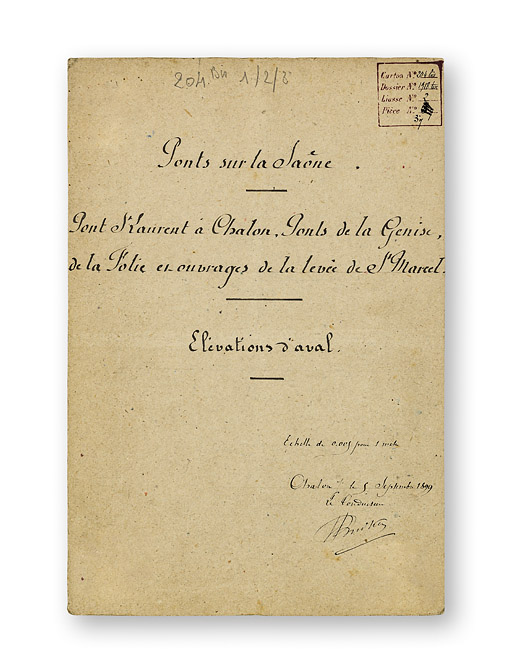 204 Bis 1/2/3
Carton N° 204 bis
Dossier N°
Liasse N° 2
Pièce N°
37
Ponts sur la Saône.
Pont St Laurent à Chalon, Ponts de la Genise,
de la Folie et ouvrages de la levée de St Marcel.
Elévations d'aval.
Echelle de 0.005 pour 1 mètre
Chalon le 5 Septembre 1899
Le Conducteur